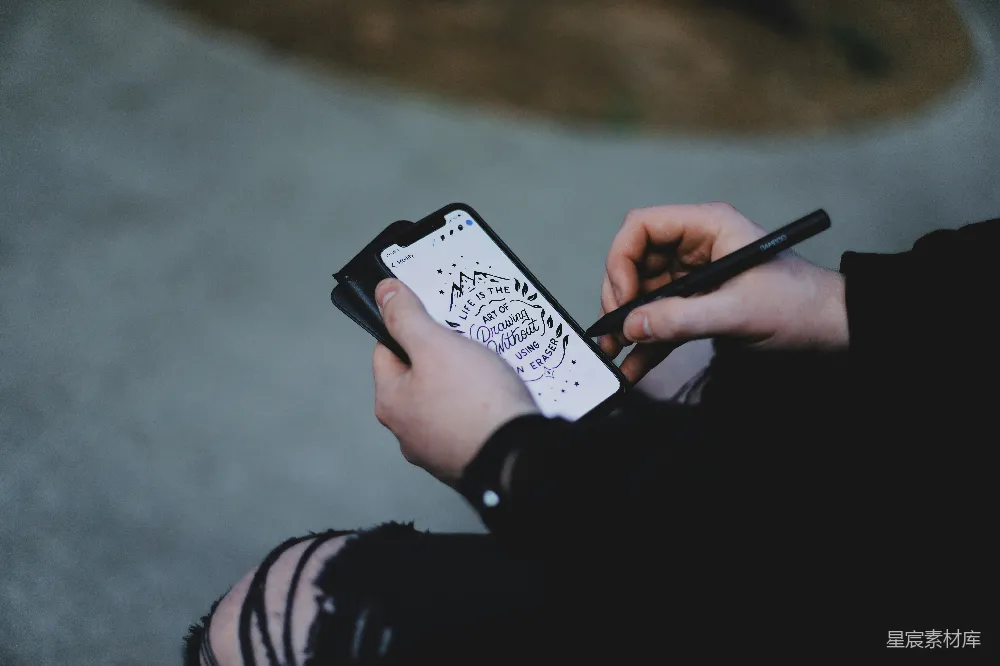 LIFE IS THE
ART OF
Drawing
Without
USING
N ERASER
BAMBOO
星宸素材库